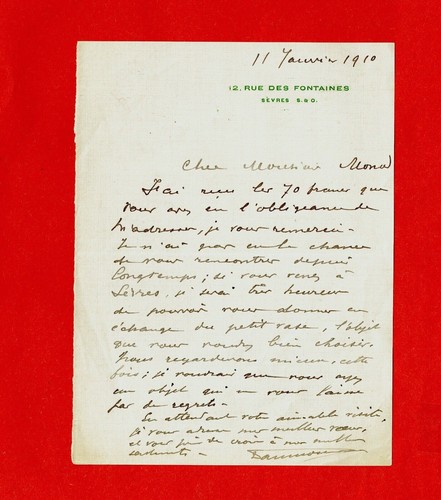 11 Janvier 1910
12, RUE DES FONTAINES
SÈVRES S. & O.
Cher Monsieur Monod
J'ai reçu les 70 francs que
vous avez eu l'obligeance de
m'adresser, je vous remercie -
Je n'ai pas eu la chance
de vous rencontrer depuis
longtemps ; si vous venez à
Sèvres, je serai très heureux
de pouvoir vous donner en
échange du petit vase, l'objet
que vous voudrez bien choisir.
Nous regarderons mieux, cette
fois ; je voudrais que vous ayez
un objet qui ne vous laisse
pas de regrets -
En attendant votre aimable visite,
je vous adresse mes meilleurs vœux,
et vous prie de croire à mes meilleurs
sentiments -